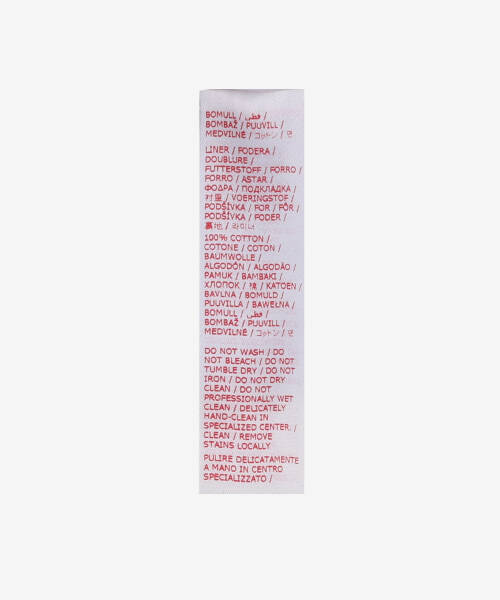 BOMULL / قطني /
BOMBAŽ / PUUVILL /
MEDVILNĖ / コットン / 면
LINER / FODERA /
DOUBLURE /
FUTTERSTOFF / FORRO /
FORRO / ASTAR /
ΦΟΔΡΑ / ПОДКЛАДКА /
衬里 / VOERINGSTOF /
PODŠÍVKA / FOR / FÔR /
PODŠÍVKA / FODER /
裏地 / 라이너
100% COTTON /
COTONE / COTON /
BAUMWOLLE /
ALGODÓN / ALGODÃO /
PAMUK / ΒΑΜΒΑΚΙ /
ХЛОПОК / 棉 / KATOEN /
BAVLNA / BOMULD /
PUUVILLA / BAWEŁNA /
BOMULL / قطني /
BOMBAŽ / PUUVILL /
MEDVILNĖ / コットン / 면
DO NOT WASH / DO
NOT BLEACH / DO NOT
TUMBLE DRY / DO NOT
IRON / DO NOT DRY
CLEAN / DO NOT
PROFESSIONALLY WET
CLEAN / DELICATELY
HAND-CLEAN IN
SPECIALIZED CENTER. /
CLEAN / REMOVE
STAINS LOCALLY
PULIRE DELICATAMENTE
A MANO IN CENTRO
SPECIALIZZATO /